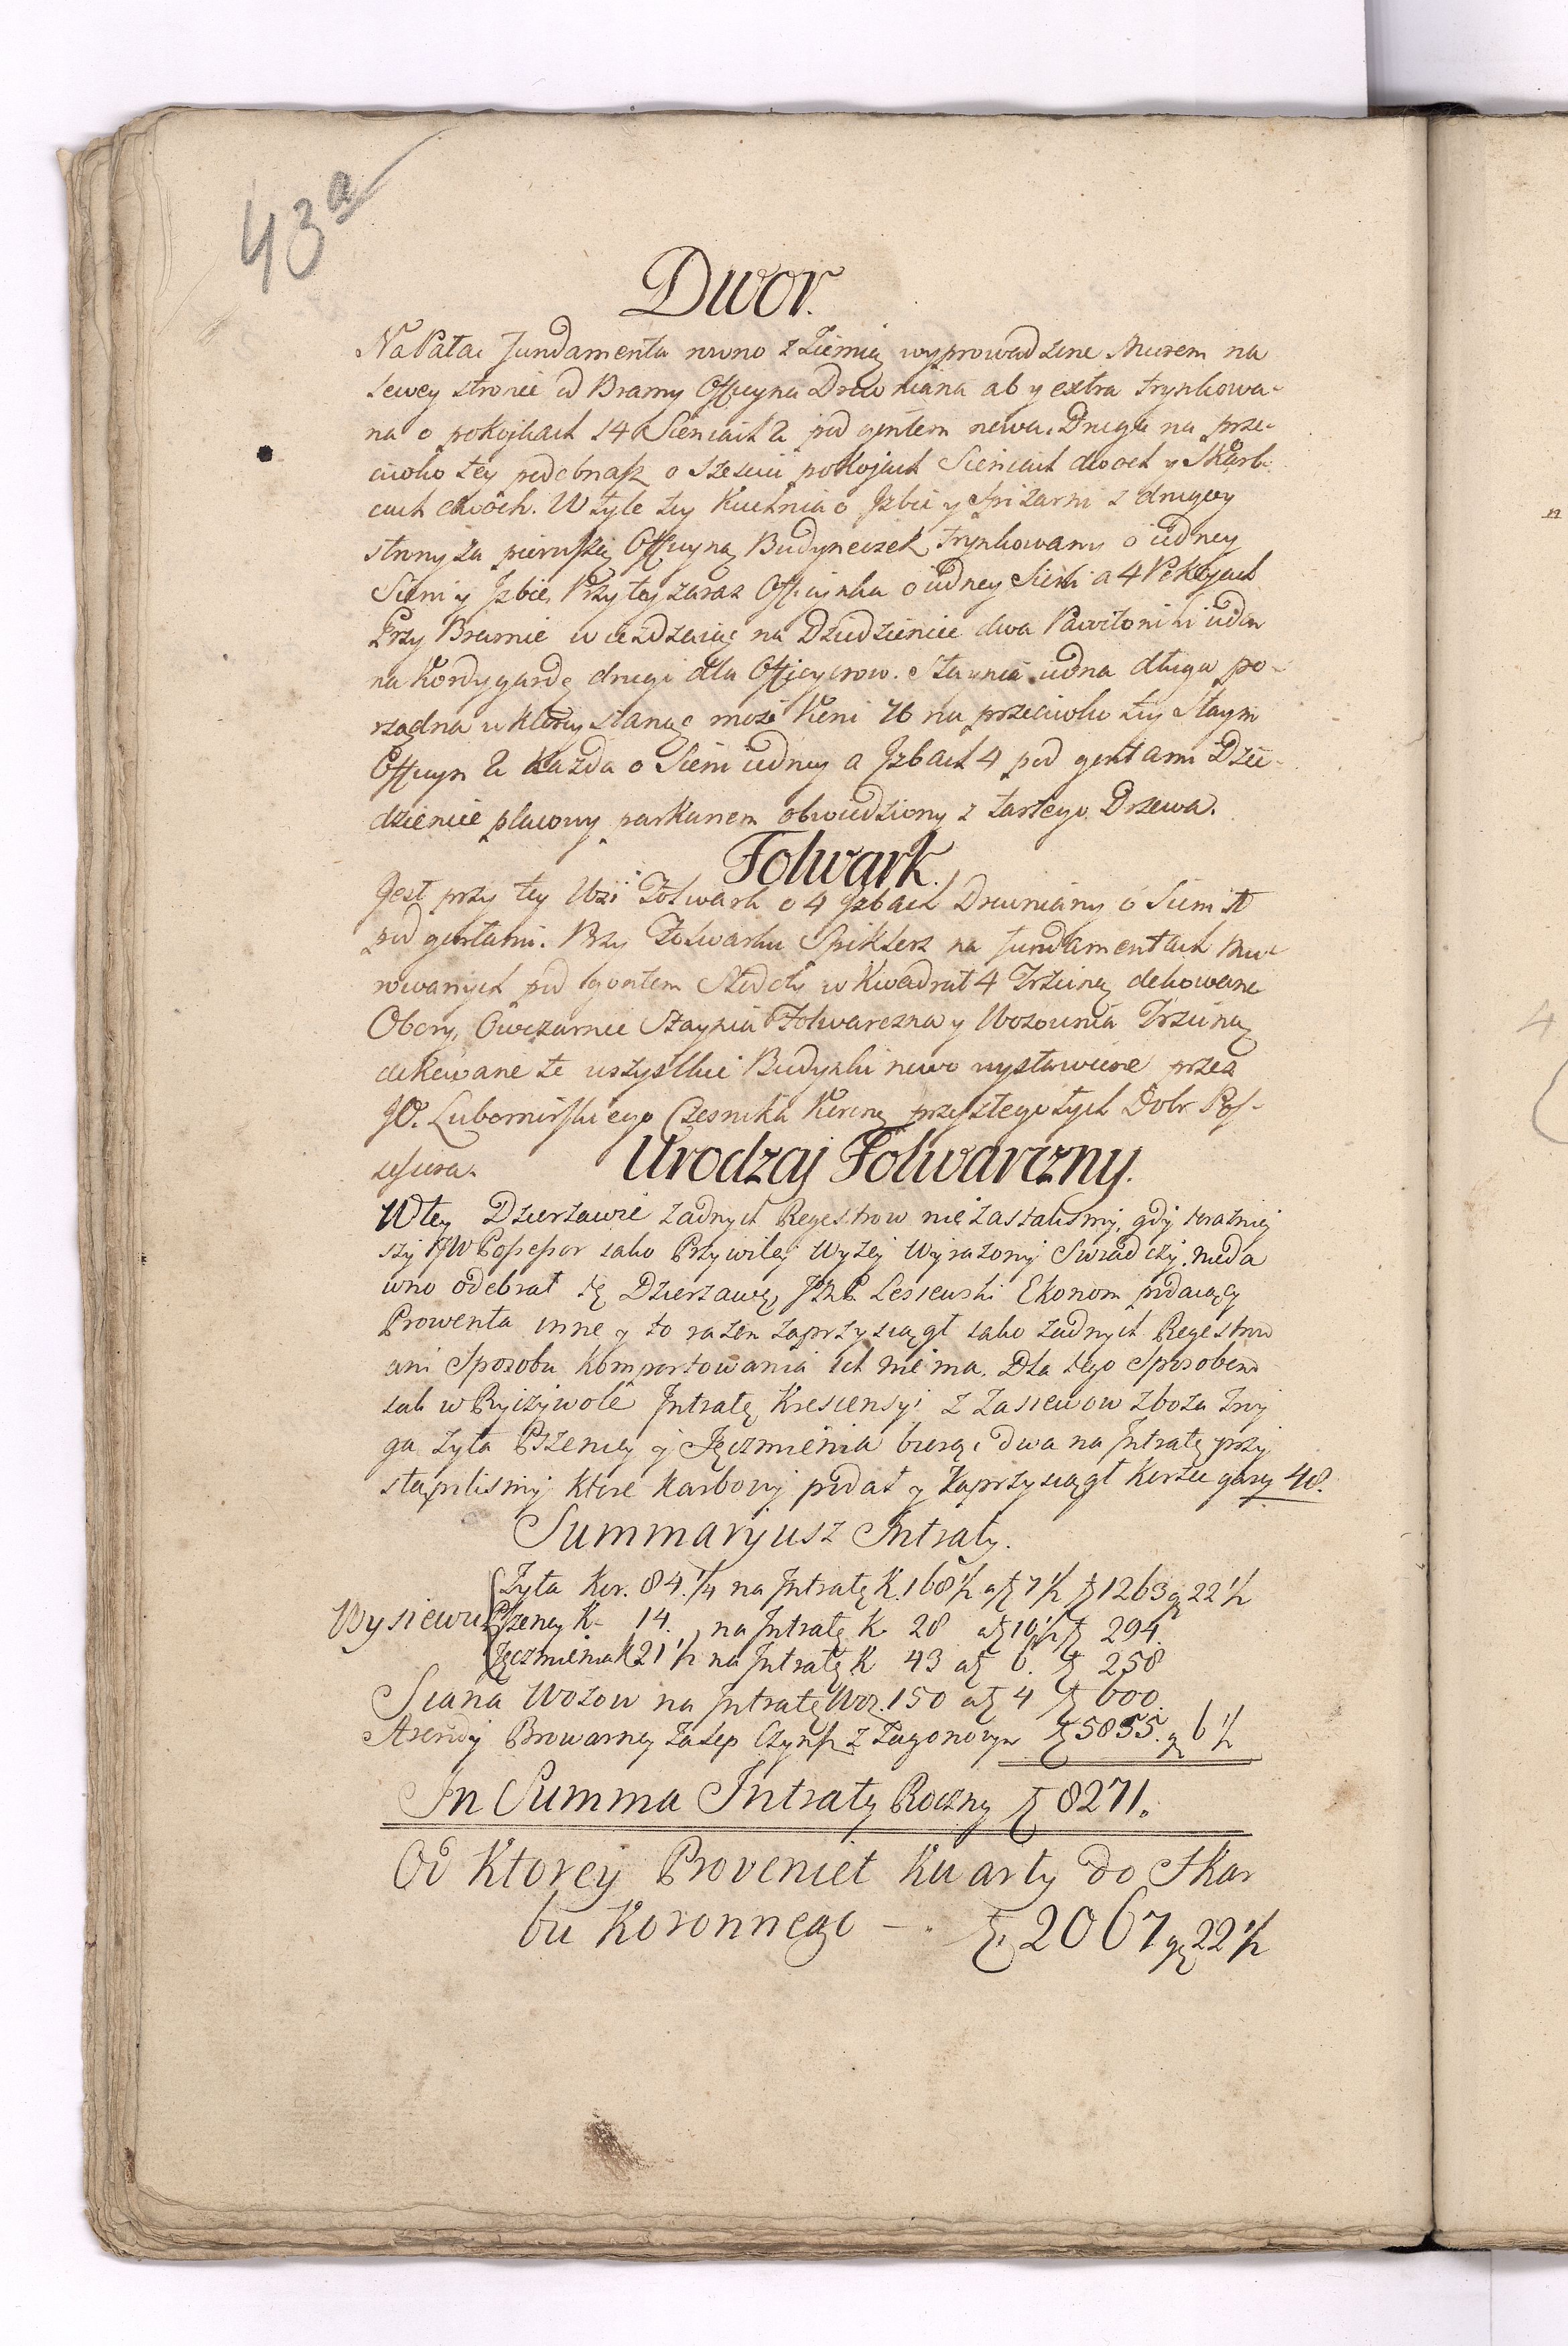 43a
Dwor.
Na Pałac fundamenta rowno z Ziemią wyprowadzone Murem na
lewey stronie od Bramy Officyna Drewniana ab y extra trynkowa-
na o pokojkach 14 Sieniach 2 pod gontem nowa. Druga na prze-
ciwko tey podobnasz o sześciu pokojach Sieniach dwoch y Skarb-
cach dwóch. W tyle tey Kuchnia o Jzbie y Spizarni z drugiey
strony za pierwszą Officyną Budyneczek trynkowany o iedney
Sieni y Jzbie, Przy tey zaraz Officynka o iedney Sieni a 4 Pokojach
Przy Bramie wieżdzaiąc na Dziedzieniec dwa Pawiloniki ieden
na Kordygardę drugi dla Officyerow. Staynia iedna długa po-
rządna w ktorey stanąc może Koni 76 na przeciwko tey Stayni
Officyn 2 każda o Sieni iedney a Jzbach 4 pod gontami Dzie-
dzieniec placowy parkanem obwiedziony z tartego Drzewa.
Folwark.
Jest przy tey Wsi Folwark o 4 Jzbach Drewniany o Sieni
pod gontami. Przy Folwarku Spiklerz na fundamentach Mu-
rowanych pod gontem Stodoły w Kwadrat 4 Trzciną dekowane
Obory, Owczarnie Staynia Folwarczna y Wozownia Trzciną
dekowane te wszystkie Budynki nowo wystawione przez
JO. Lubomirskiego Czesnika Koron. przeszłego tych Dobr Pos-
sessora.
Urodzaj Folwarczny.
W tey Dzierzawie żadnych Regestrow nie zastalismy, gdy teraźniej
szy JW Possessor iako Przywiley Wyzey Wyrazony Swiadczy, nieda
wno odebrał tę Dzierzawę, Lesiewski Ekonom podaiący
Prowenta inne y to razem zaprzysiągł iako żadnych Regestrow
ani Sposobu komportowania ich nie ma. Dla tego Sposobem
iak w Ryczywole Jntratę Krescensyi z zasiewow zboża tny
ga żyta Pszenicy y Jęczmienia biorąc dwa na Jntratę przy
stąpilismy ktore karbowy podał y Zaprzysiągł Korzec garcy 48.
Summaryusz Jntraty.
Wysiewu Żyta Kor. 84 1/4 na Jntratę K. 168 1/2 a zł 7 1/2 zł 1263 gr 22 1/2
Pszenicy K. 14. na Jntratę K. 28 a zł 10 1/2 zł 294.
Jęczmienia K 21 1/2 na Jntratę K 43 a zł 6. zł 258
Siana Wozow na Jntratę Woz. 150 a zł 4 zł 600.
Arendy Browarney Zasep Czynsz z Zagonowym zł 5855. gr 6 1/2
In Summa Intraty Roczny zł 8271.
Od Ktorey Proveniet Kwarty do Skar
bu Koronnego - zł 2067 gr 22 1/2